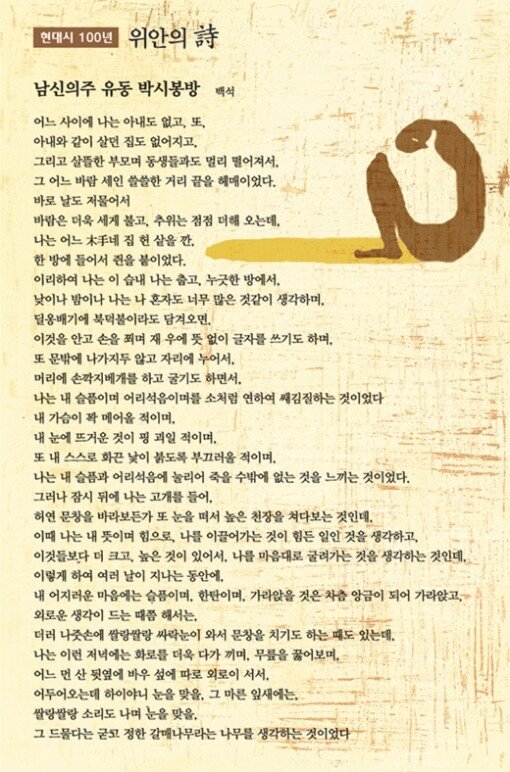 현대시 100년 위안의 詩
남신의주 유동 박시봉방 백석
어느 사이에 나는 아내도 없고, 또,
아내와 같이 살던 집도 없어지고,
그리고 살뜰한 부모며 동생들과도 멀리 떨어져서,
그 어느 바람 세인 쓸쓸한 거리 끝을 헤매이었다.
바로 날도 저물어서
바람은 더욱 세게 불고, 추위는 점점 더해 오는데,
나는 어느 木手네 집 헌 삿을 깐,
한 방에 들어서 쥔을 붙이었다.
이리하여 나는 이 습내 나는 춥고, 누긋한 방에서,
낮이나 밤이나 나는 나 혼자도 너무 많은 것같이 생각하며,
딜옹배기에 북덕불이라도 담겨오면,
이것을 안고 손을 쬐며 재 우에 뜻 없이 글자를 쓰기도 하며,
또 문밖에 나가지두 않고 자리에 누어서,
머리에 손깍지베개를 하고 굴기도 하면서,
나는 내 슬픔이며 어리석음이며를 소처럼 연하여 쌔김질하는 것이었다
내 가슴이 꽉 메어올 적이며,
내 눈에 뜨거운 것이 핑 괴일 적이며,
또 내 스스로 화끈 낯이 붉도록 부끄러울 적이며,
나는 내 슬픔과 어리석음에 눌리어 죽을 수밖에 없는 것을 느끼는 것이었다.
그러나 잠시 뒤에 나는 고개를 들어,
허연 문창을 바라보든가 또 눈을 떠서 높은 천장을 쳐다보는 것인데,
이때 나는 내 뜻이며 힘으로, 나를 이끌어가는 것이 힘든 일인 것을 생각하고,
이것들보다 더 크고, 높은 것이 있어서, 나를 마음대로 굴려가는 것을 생각하는 것인데,
이렇게 하여 여러 날이 지나는 동안에,
내 어지러운 마음에는 슬픔이며, 한탄이며, 가라앉을 것은 차츰 앙금이 되어 가라앉고,
외로운 생각이 드는 때쯤 해서는,
더러 나줏손에 쌀랑쌀랑 싸락눈이 와서 문창을 치기도 하는 때도 있는데,
나는 이런 저녁에는 화로를 더욱 다가 끼며, 무릎을 꿇어보며,
어느 먼 산 뒷옆에 바우 섶에 따로 외로이 서서,
어두어오는데 하이야니 눈을 맞을, 그 마른 잎새에는,
쌀랑쌀랑 소리도 나며 눈을 맞을,
그 드물다는 굳고 정한 갈매나무라는 나무를 생각하는 것이었다